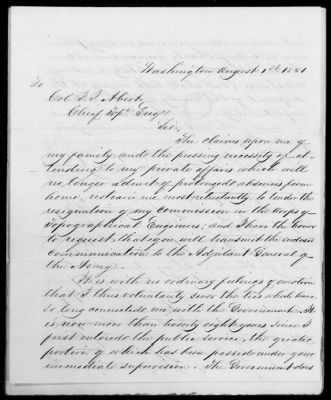 Washington August 1st 1851
To
Col J. J. Abert
Chief Topl. Engrs
Sir,
The claims upon me of
my family, and the pressing necessity of at-
tending to my private affairs which will
no longer admit of prolonged absences from
home, me most reluctantly to tender the
resignation of my commission in the Corps of
Topographical Engineers; and I have the honor
to request that you will transmit the enclosed
communication to the Adjutant General of
the Army.
It is with no ordinary feelings of emotion
that I thus voluntarily sever the ties which have
so long connected me with the Government. It
is now more than twenty eight years since I
first entered the public service, the greater
portion of which has been passed under your
immediate supervision. The Government does